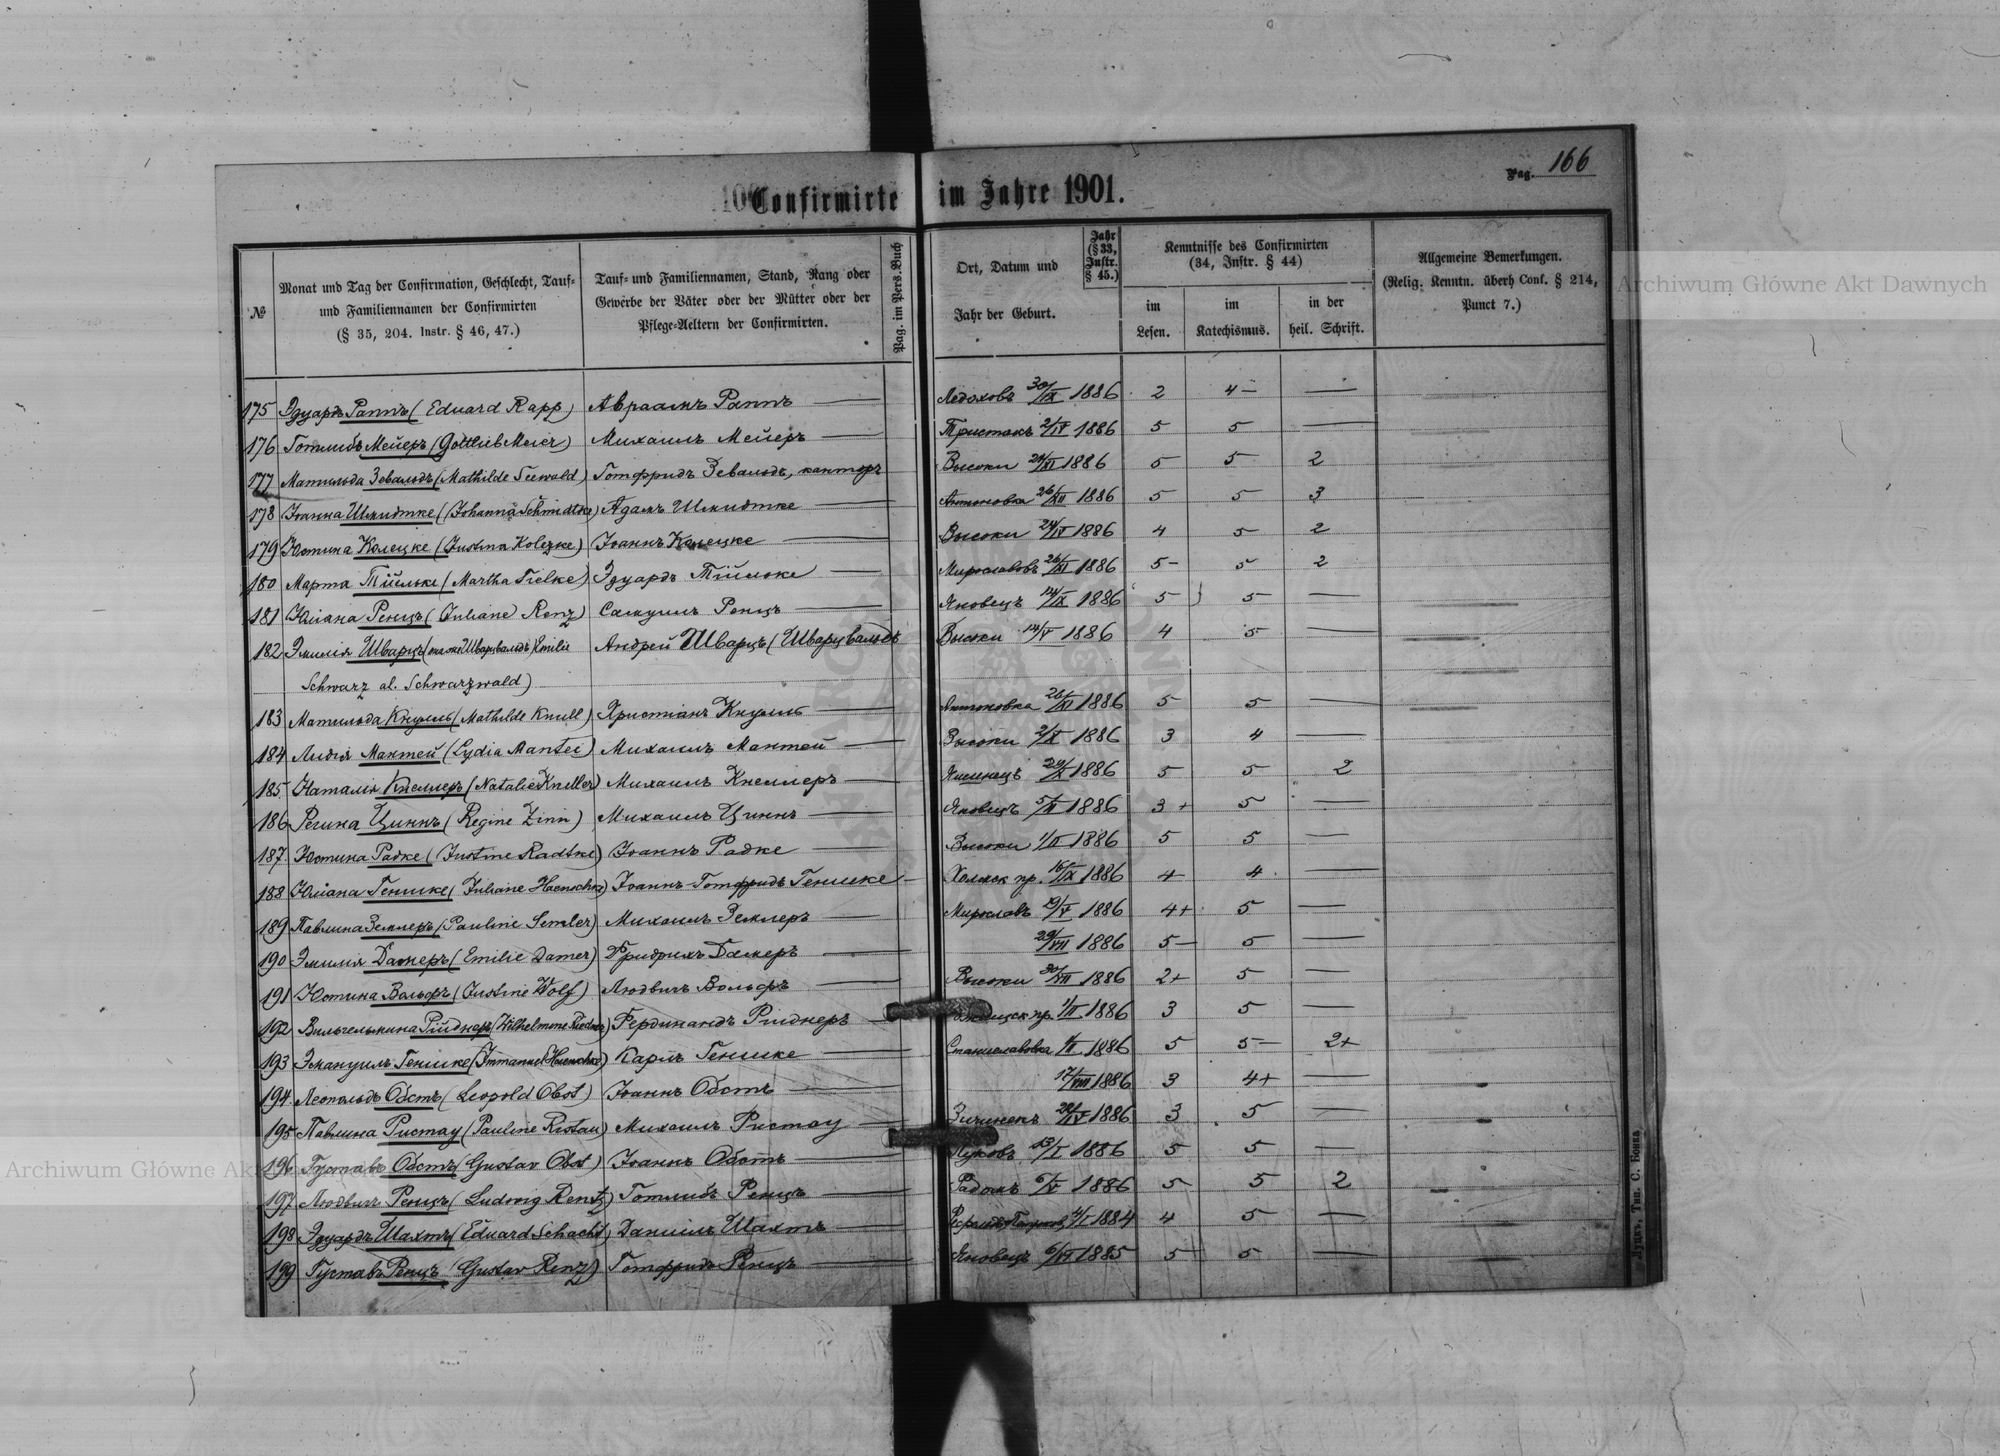 Pag. 166
Confirmirte im Jahre 1901.
№
Monat und Tag der Confirmation, Geschlecht, Tauf-
und Familiennamen der Confirmirten
(§ 35, 204. Instr. § 46, 47.)
Tauf- und Familiennamen, Stand, Rang oder
Gewerbe der Väter oder der Mütter oder der
Pflege-Aeltern der Confirmirten.
Pag. im Pers.Buch
Ort, Datum und
Jahr der Geburt.
Jahr
(§ 33,
Instr.
§ 45.)
Kenntnisse des Confirmirten
(34, Instr. § 44)
im
Lesen.
im
Katechismus.
in der
heil. Schrift.
Allgemeine Bemerkungen.
(Relig. Kenntn. überh Conf. § 214,
Punct 7.)
175 Эдуардъ Раппъ (Eduard Rapp) Авраамъ Раппъ — Ледоховъ 30/IX 1886 2 4- —
176 Готлибъ Мейеръ (Gottlieb Meier) Михаилъ Мейеръ — 2/IV 1886 5 5 —
177 Матильда Зевальдъ (Mathilde Seewald) Готфридъ Зевальдъ, канторъ Высоки 1886 5 5 2
178 Іоанна Шмидтке (Johanna Schmidtke) Адамъ Шмидтке — Антоновка 26/XII 1886 5 5 3
179 Юстина Колецке (Justina Kolezke) Іоаннъ Колецке — Высоки 24/IV 1886 4 5 2
180 Марта Тійльке (Martha Tielke) Эдуардъ Тійльке — Мирославовъ 26/XI 1886 5- 5 2
181 Юліана Ренцъ (Juliane Renz) Самуилъ Ренцъ — Яновецъ 14/IX 1886 5 5 —
182 Эмилія Шварцъ (также Шварцвальдъ) Emilie Андрей Шварцъ (Шварцвальдъ Высоки 14/V 1886 4 5 —
Schwarz al. Schwarzwald)
183 Матильда Кнулль (Mathilde Knull) Христіанъ Кнулль — Антоновка 26/XI 1886 5 5 —
184 Лидія Мантей (Lydia Mantei) Михаилъ Мантей — Высоки 2/X 1886 3 4 —
185. Наталія Кнеллеръ (Natalie Kneller) Михаилъ Кнеллеръ — 29/X 1886 5 5 2
186 Регина Циннъ (Regine Zinn) Михаилъ Циннъ — Яновецъ 5/II 1886 3+ 5 —
187. Юстина Радке (Justine Radtke) Іоаннъ Радке — Высоки 1/II 1886 5 5 —
188 Юліана Геншке (Juliane Haenschke) Іоаннъ-Готфридъ Геншке — Холмск пр. 16/IX 1886 4 4 —
189 Павлина Землеръ (Pauline Semler) Михаилъ Землеръ — Мирославъ 19/V 1886 4+ 5 —
190 Эмилія Дамеръ (Emilie Damer) Фридрихъ Дамеръ — 29/VII 1886 5- 5 —
191 Юстина Вольфъ (Justine Wolf) Людвигъ Вольфъ — Высоки 30/XII 1886 2+ 5 —
192 Вильгельмина Ріднеръ (Wilhelmine Riedner) Фердинандъ Ріднеръ — 1/II 1886 3 5 —
193 Эмануилъ Геншке (Immanuel Haenschke) Карлъ Геншке — Станиславовка 1886 5 5- 2+
194. Леопольдъ Обстъ (Leopold Obst) Іоаннъ Обстъ — 17/VIII 1886 3 4+ —
195 Павлина Ристау (Pauline Ristau) Михаилъ Ристау — 28/IV 1886 3 5 —
196 Густавъ Обстъ (Gustav Obst) Іоаннъ Обстъ — 19/I 1886 5 5 —
197 Людвигъ Ренцъ (Ludwig Rentz) Готлибъ Ренцъ — Радомъ 6/V 1886 5 5 2
198 Эдуардъ Шахтъ (Eduard Schacht) Даніилъ Шахтъ — 1884 4 5 —
199 Густавъ Ренцъ (Gustav Renz) Готфридъ Ренцъ — Яновецъ 6/VI 1885 5 5 —
Луцкъ, Тип. С. Бонка
Archiwum Główne Akt Dawnych
Archiwum Główne Akt Dawnych